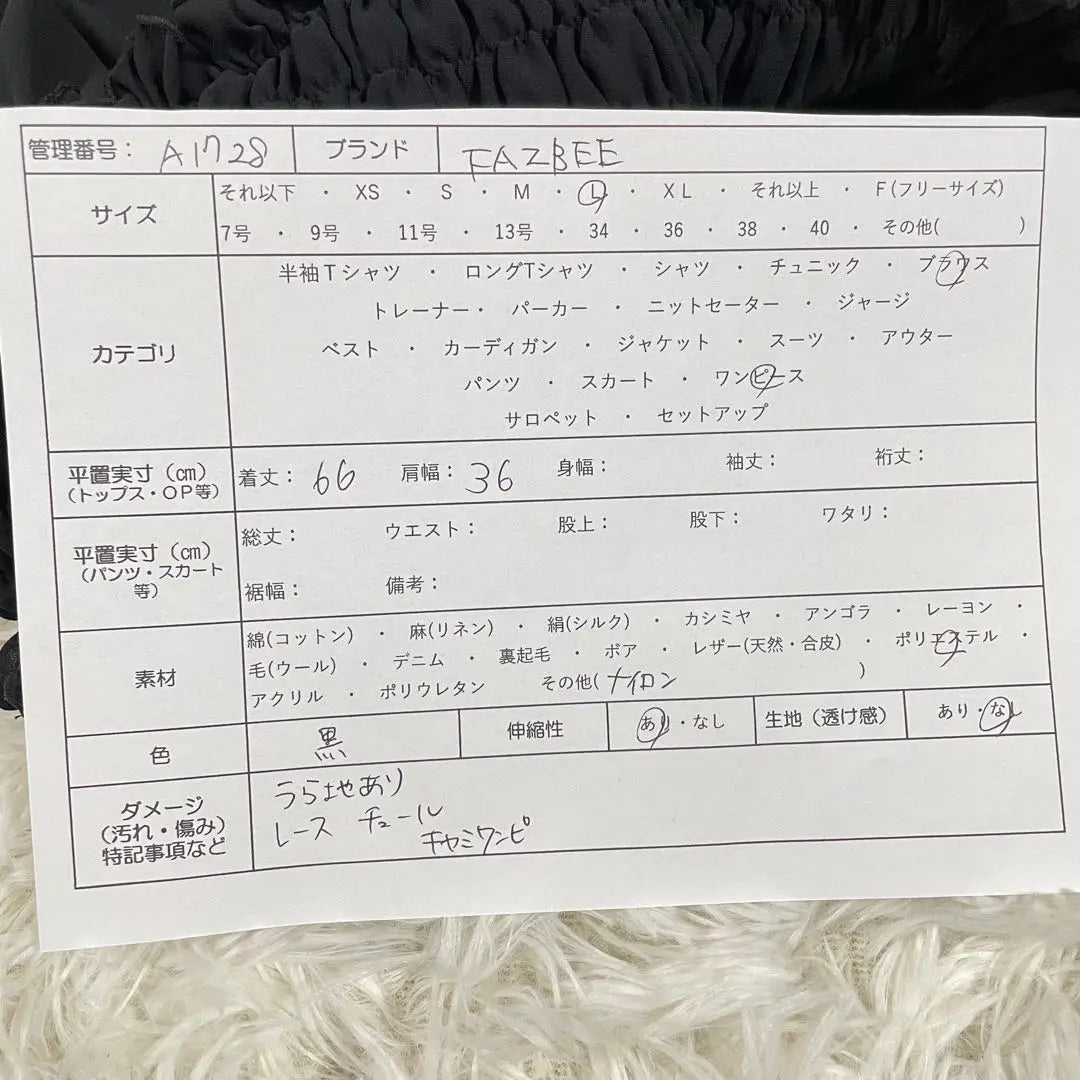 管理番号： A1728 ブランド FAZBEE
サイズ それ以下 ・ XS ・ S ・ M ・ L ・ XL ・ それ以上 ・ F(フリーサイズ)
7号 ・ 9号 ・ 11号 ・ 13号 ・ 34 ・ 36 ・ 38 ・ 40 ・ その他( )
カテゴリ 半袖Tシャツ ・ ロングTシャツ ・ シャツ ・ チュニック ・ ブラウス
トレーナー・ パーカー ・ ニットセーター ・ ジャージ
ベスト ・ カーディガン ・ ジャケット ・ スーツ ・ アウター
パンツ ・ スカート ・ ワンピース
サロペット ・ セットアップ
平置実寸（㎝） 着丈： 66 肩幅： 36 身幅： 袖丈： 裄丈：
（トップス・ＯＰ等）
平置実寸（㎝） 総丈： ウエスト： 股上： 股下： ワタリ：
（パンツ・スカート
等） 裾幅： 備考：
素材 綿(コットン) ・ 麻(リネン) ・ 絹(シルク) ・ カシミヤ ・ アンゴラ ・ レーヨン ・
毛(ウール) ・ デニム ・ 裏起毛 ・ ボア ・ レザー(天然・合皮) ・ ポリエステル ・
アクリル ・ ポリウレタン その他( ナイロン )
色 黒 伸縮性 あり・なし 生地（透け感） あり・なし
ダメージ
（汚れ・傷み）
特記事項など
うら地あり
レース チュール
キャミワンピ